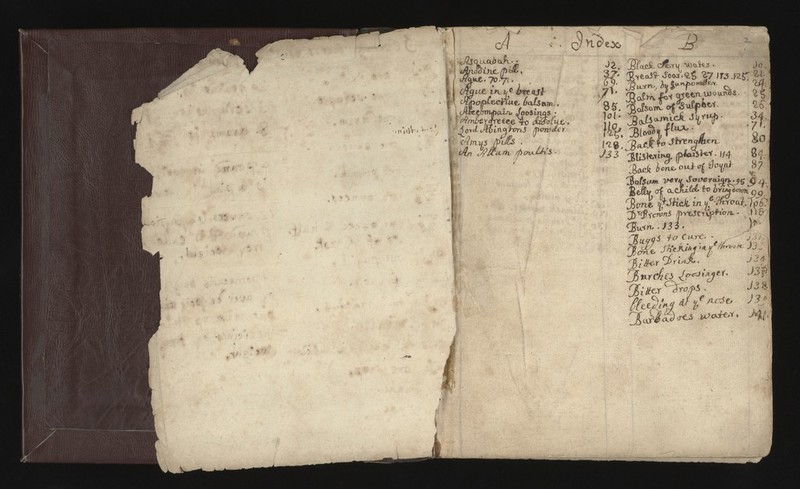 A Index B
Asquabah. 12.
Anodine pill. 37.
Ague. 70.71. 69.
Ague in ye breast 71.
Apoplective balsam. 85.
Alecompain Loosings. 101.
Ambergreece to disolue. 110.
Lord Abingtons powder 125.
Amys pills. 128.
An Allum poultis. 133
Black Chery water. 10.
Breast Soar. 25 27 113.125. 21.
Burn, by Gunpowder
Balm for green wounds. 25
Balsom of Sulpher. 26
Balsamick Syrup. 34.
Bloody flux. 71.
Back to Strengthen 80
Blistering plaister. 114
Back bone out of Joynt 87
Balsam very Soveraign. 94.
Belly of a child to bring down 99.
Bone yt Stick in ye throat. 106
Dr prescription. 116
Burn. 133.
Buggs to Cure.
Bone Sticking in ye throat
Bitter Drink.
Burches Loosinger.
Bitter drops. 138
bleeding at ye nose.
Barbadoes water.